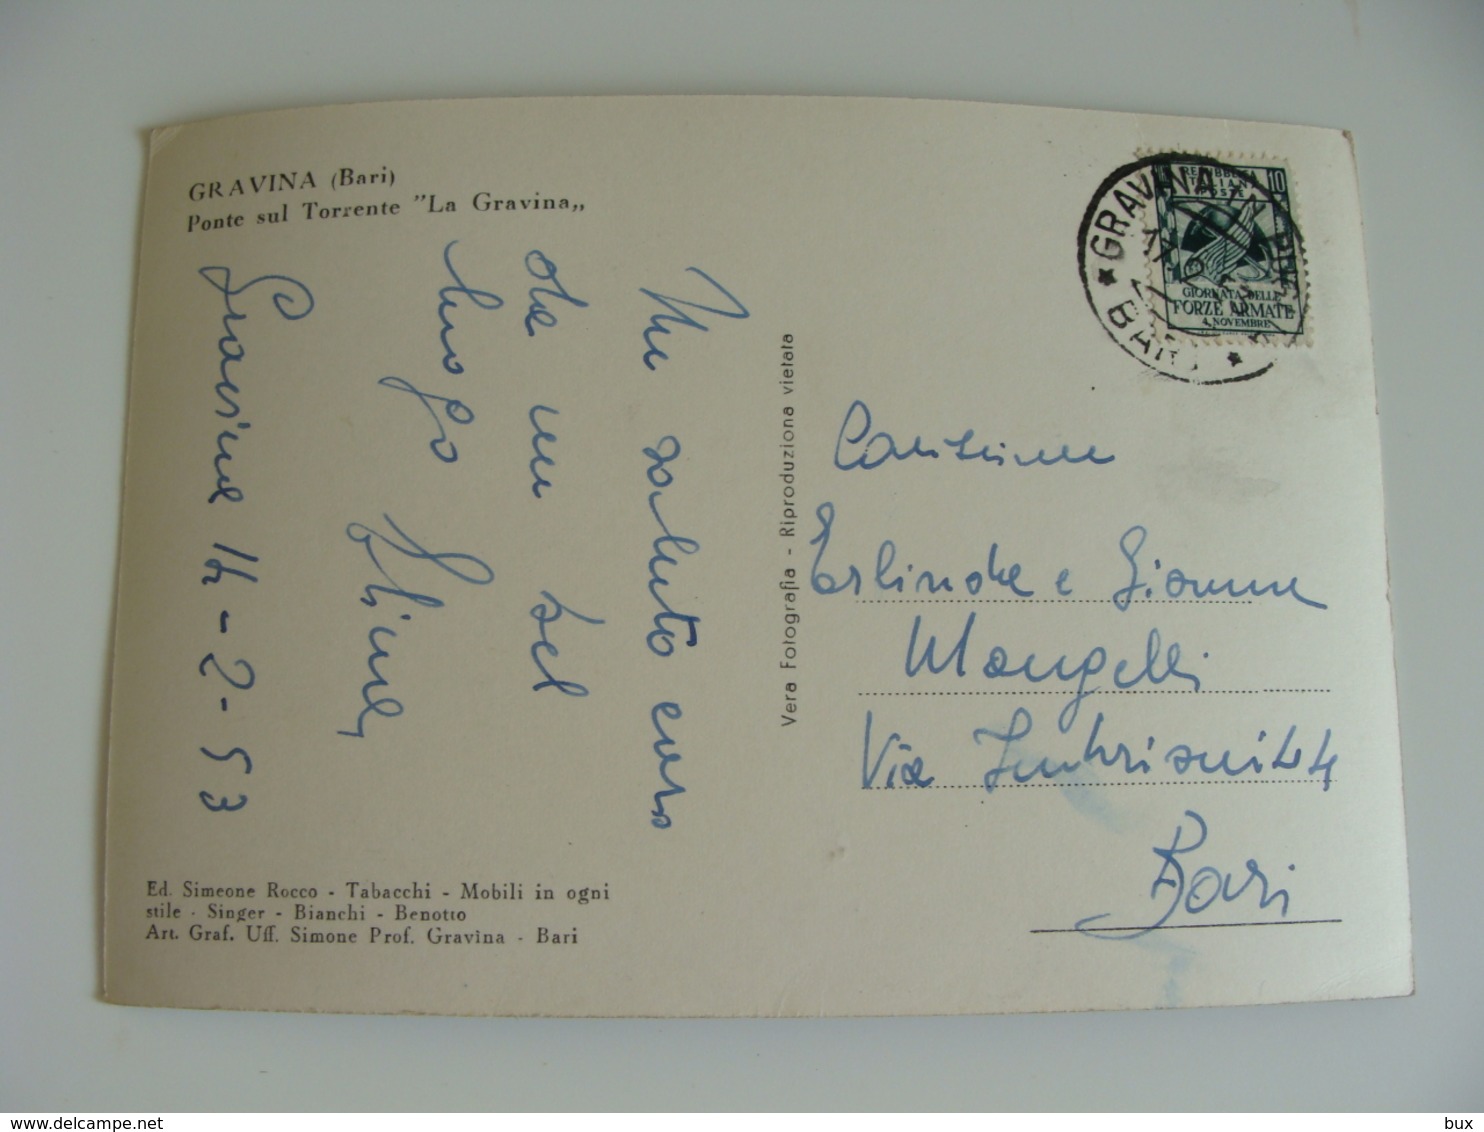 GRAVINA (Bari)
Ponte sul Torrente "La Gravina„
Un saluto caro
da un bel
luogo
Gravina 14-2-53
Ed. Simeone Rocco - Tabacchi - Mobili in ogni
stile - Singer - Bianchi - Benotto
Art. Graf. Uff. Simone Prof. Gravina - Bari
Vera Fotografia - Riproduziona vietata
GRAVINA IN PUGLIA
BARI
10
REPUBBLICA
ITALIANA
POSTE
GIORNATA DELLE
FORZE ARMATE
4 NOVEMBRE
Carissime
Erlinda e Gianna
Mangelli
Via Imbriani 44
Bari
bux